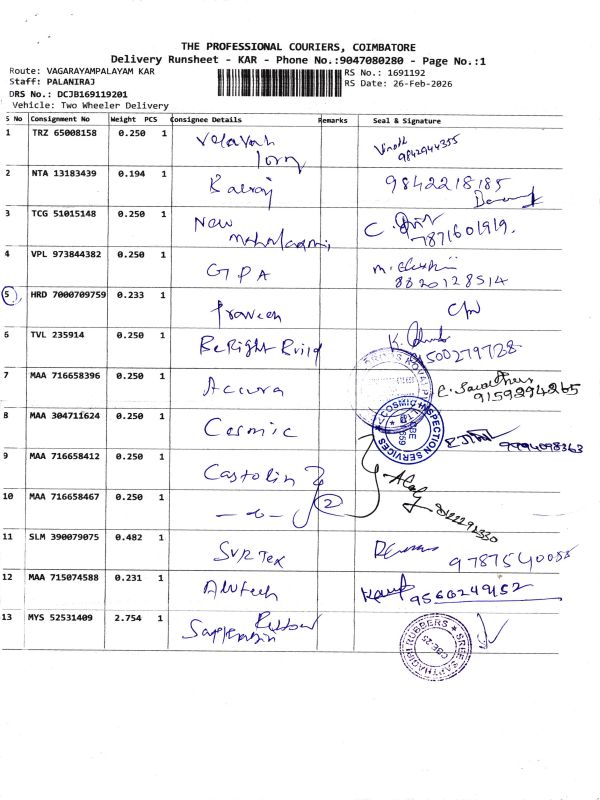 THE PROFESSIONAL COURIERS, COIMBATORE
Delivery Runsheet - KAR - Phone No.:9047080280 - Page No.:1
Route: VAGARAYAMPALAYAM KAR
RS No.: 1691192
Staff: PALANIRAJ
RS Date: 26-Feb-2026
DRS No.: DCJB169119201
Vehicle: Two Wheeler Delivery
S No Consignment No Weight PCS Consignee Details Remarks Seal & Signature
1 TRZ 65008158 0.250 1
Vinoth
9842944355
2 NTA 13183439 0.194 1 9842218185
3 TCG 51015148 0.250 1 New
7871601919.
4 VPL 973844382 0.250 1 GPA
8820128514
5 HRD 7000709759 0.233 1 Praveen
6 TVL 235914 0.250 1 BeRight Build
9500279728
7 MAA 716658396 0.250 1 Accura
9159394265
8 MAA 304711624 0.250 1 Cosmic
COSMIC INSPECTION SERVICES
9994098363
9 MAA 716658412 0.250 1 Castolin
10 MAA 716658467 0.250 1 2
11 SLM 390079075 0.482 1 SVR Tex
12 MAA 715074588 0.231 1
9560249152
13 MYS 52531409 2.754 1 Rubber
SREE SAPTHAGIRI RUBBERS
CBE-25